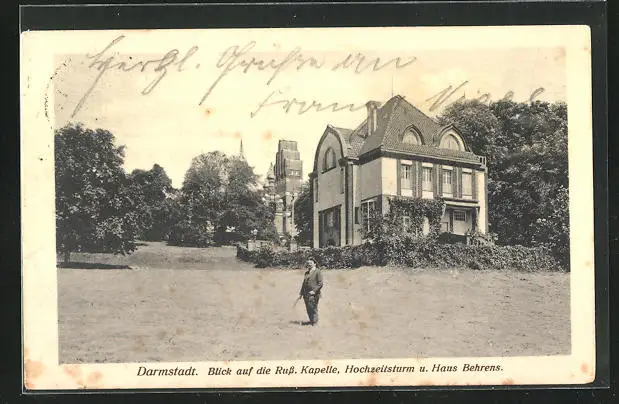 Herzl. Grüsse an
Frau
Darmstadt. Blick auf die Ruß. Kapelle, Hochzeitsturm u. Haus Behrens.